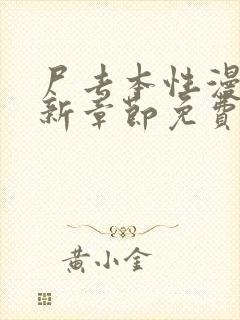 尸去本性漫
新章節免費
黃小金